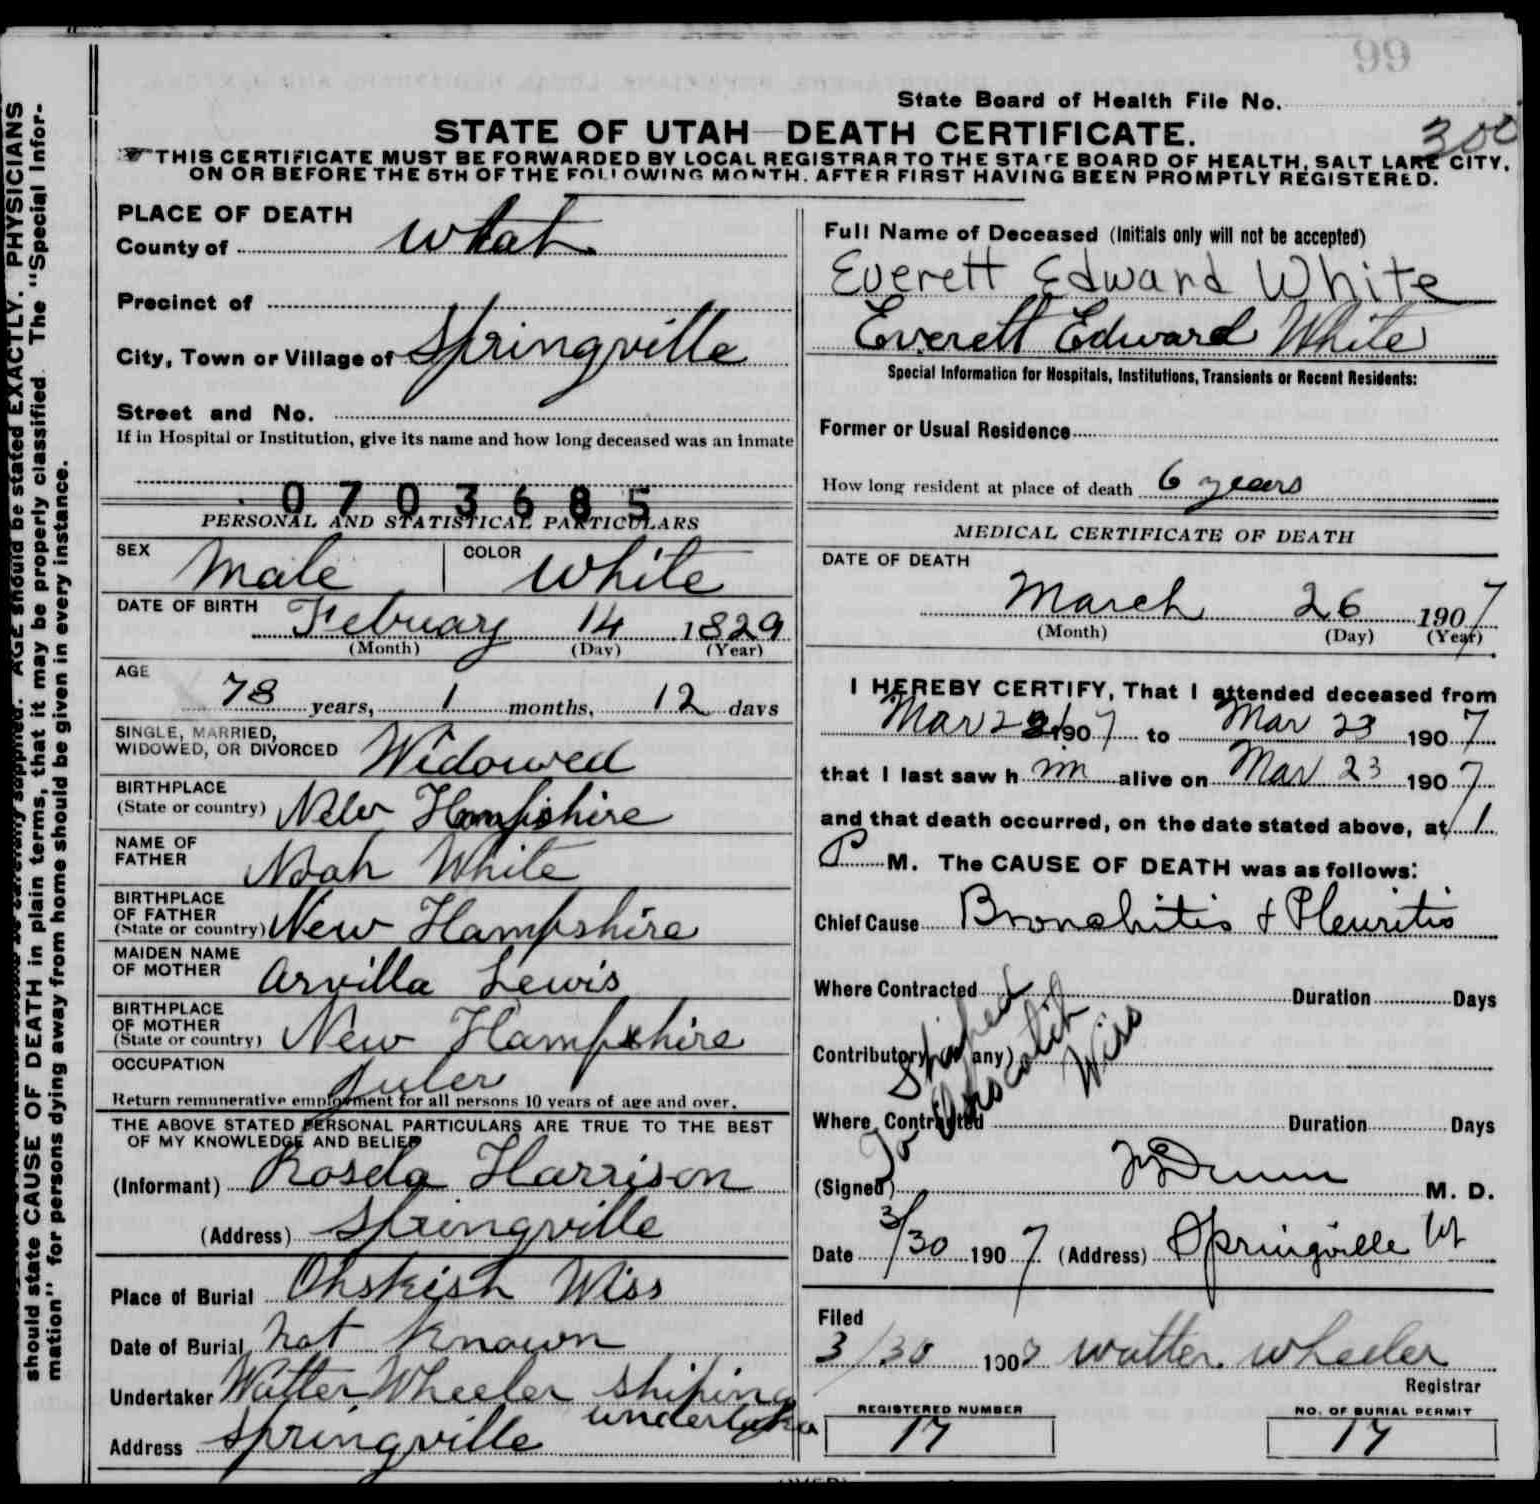 99
State Board of Health File No.
300
STATE OF UTAH—DEATH CERTIFICATE.
THIS CERTIFICATE MUST BE FORWARDED BY LOCAL REGISTRAR TO THE STATE BOARD OF HEALTH, SALT LAKE CITY,
ON OR BEFORE THE 5TH OF THE FOLLOWING MONTH, AFTER FIRST HAVING BEEN PROMPTLY REGISTERED.
should state CAUSE OF DEATH in plain terms, that it may be properly classified. The "Special Infor-
mation" for persons dying away from home should be given in every instance.
AGE should be stated EXACTLY. PHYSICIANS
PLACE OF DEATH
County of Utah
Precinct of
City, Town or Village of Springville
Street and No.
If in Hospital or Institution, give its name and how long deceased was an inmate
0703685
PERSONAL AND STATISTICAL PARTICULARS
SEX Male COLOR White
DATE OF BIRTH Februay 14 1829
(Month) (Day) (Year)
AGE
78 years, 1 months, 12 days
SINGLE, MARRIED,
WIDOWED, OR DIVORCED Widowed
BIRTHPLACE
(State or country) New Hampshire
NAME OF
FATHER Noah White
BIRTHPLACE
OF FATHER
(State or country) New Hampshire
MAIDEN NAME
OF MOTHER Arvilla Lewis
BIRTHPLACE
OF MOTHER
(State or country) New Hampshire
OCCUPATION
Juler
Return remunerative employment for all persons 10 years of age and over.
THE ABOVE STATED PERSONAL PARTICULARS ARE TRUE TO THE BEST
OF MY KNOWLEDGE AND BELIEF
(Informant) Rosela Harrison
(Address) Springville
Place of Burial Ohskish Wiss
Date of Burial Not Known
Undertaker Walter Wheeler Shiping
undertaka
Address Springville
Full Name of Deceased (Initials only will not be accepted)
Everett Edward White
Everett Edward White
Special Information for Hospitals, Institutions, Transients or Recent Residents:
Former or Usual Residence
How long resident at place of death 6 years
MEDICAL CERTIFICATE OF DEATH
DATE OF DEATH
March 26 1907
(Month) (Day) (Year)
I HEREBY CERTIFY, That I attended deceased from
Mar 1907 to Mar 23 1907
that I last saw h im alive on Mar 23 1907
and that death occurred, on the date stated above, at 1
P M. The CAUSE OF DEATH was as follows:
Chief Cause Bronchitis & Pleuritis
Where Contracted Duration Days
Contributory (if any)
Where Contracted Duration Days
Shiped
To
Wiss
(Signed) M. D.
Date 3/30 1907 (Address) Springville Ut
Filed
3/30 1907 Walter Wheeler
Registrar
REGISTERED NUMBER
17
NO. OF BURIAL PERMIT
17
(OVER)